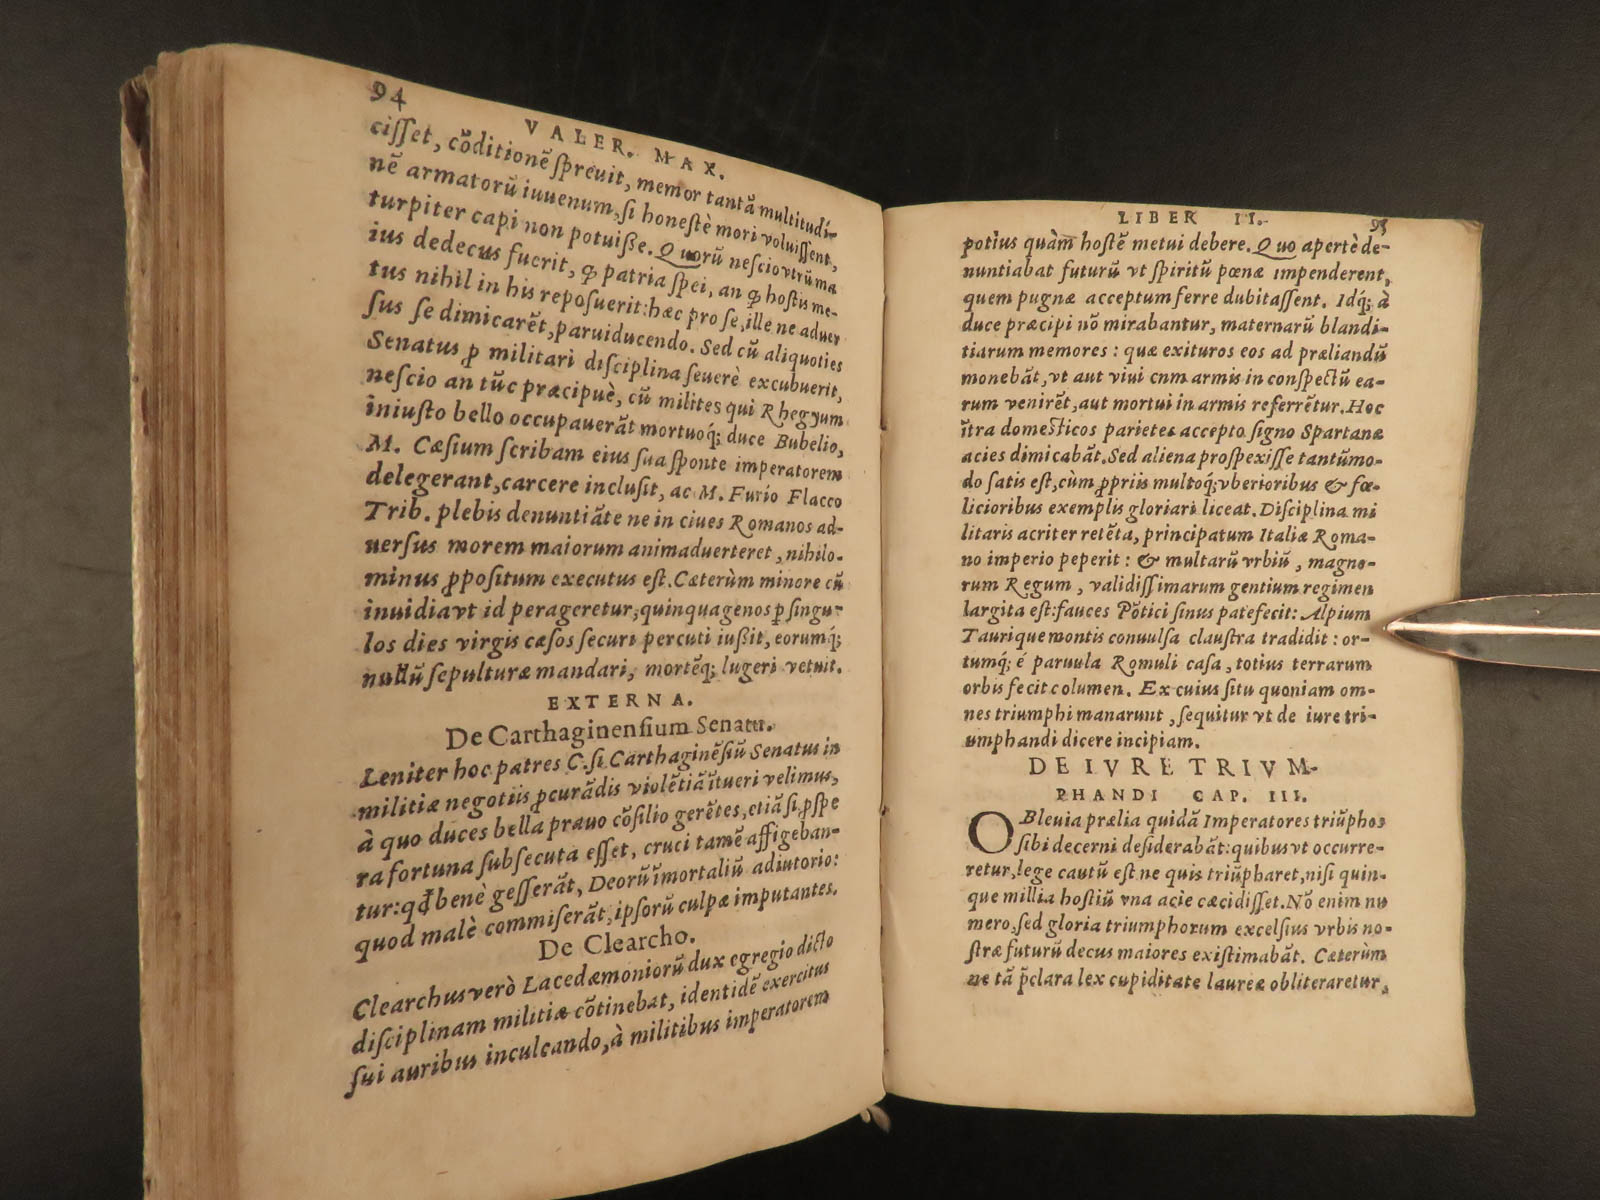 94
VALER. MAX.
ciſſet, cõditionẽ ſpreuit, memor tantã multitudi-
nẽ armatorũ iuuenum, ſi honeſtè mori voluiſſent,
turpiter capi non potuiſſe. Quorũ neſcio vtrũ ma
ius dedecus fuerit, ꝙ patria ſpei, an ꝙ hoſtis me-
tus nihil in his repoſuerit: hæc pro ſe, ille ne aduer
ſus ſe dimicarẽt, paruiducendo. Sed cũ aliquoties
Senatus ꝓ militari diſciplina ſeuerè excubuerit,
neſcio an tũc præcipuè, cũ milites qui Rhegyum
iniuſto bello occupauerãt mortuoq́; duce Bubelio,
M. Cæſium ſcribam eius ſua ſponte imperatorem
delegerant, carcere incluſit, ac M. Furio Flacco
Trib. plebis denuntiãte ne in ciues Romanos ad-
uerſus morem maiorum animaduerteret, nihilo-
minus ꝓpoſitum executus eſt. Cæterùm minore cũ
inuidia vt id perageretur, quinquagenos ꝑ ſingu-
los dies virgis cæſos ſecuri percuti iußit, eorumq́;
nullũ ſepulturæ mandari, mortẽq́; lugeri vetuit.
EXTERNA.
De Carthaginenſium Senatu.
Leniter hoc patres C. ſi Carthaginẽſiũ Senatus in
militiæ negotiis ꝓcurãdis violẽtiã ĩtueri velimus,
à quo duces bella prauo cõſilio gerẽtes, etiã ſi ꝓſpe
ra fortuna ſubſecuta eſſet, cruci tamẽ affigeban-
tur: qđ benè geſſerãt, Deorũ ĩmortaliũ adiutorio:
quod malè commiſerãt, ipſorũ culpæ imputantes.
De Clearcho.
Clearchus verò Lacedæmoniorũ dux egregio dicto
diſciplinam militiæ cõtinebat, identidẽ exercitus
ſui auribus inculcando, à militibus imperatorem
LIBER II.
95
potius quàm hoſtẽ metui debere. Quo apertè de-
nuntiabat futurũ vt ſpiritũ pœnæ impenderent,
quem pugnæ acceptum ferre dubitaſſent. Idq́; à
duce præcipi nõ mirabantur, maternarũ blandi-
tiarum memores: quæ exituros eos ad præliandũ
monebãt, vt aut viui cnm armis in conſpectũ ea-
rum venirẽt, aut mortui in armis referrẽtur. Hoc
ĩtra domeſticos parietes accepto ſigno Spartanæ
acies dimicabãt. Sed aliena proſpexiſſe tantũmo-
do ſatis eſt, cùm ꝓpriis multoq́; vberioribus & fœ-
licioribus exemplis gloriari liceat. Diſciplina mi
litaris acriter retẽta, principatum Italiæ Roma-
no imperio peperit: & multarũ vrbiũ, magno-
rum Regum, validiſſimarum gentium regimen
largita eſt: fauces Põtici ſinus patefecit: Alpium
Taurique montis conuulſa clauſtra tradidit: or-
tumq́; é paruula Romuli caſa, totius terrarum
orbis fecit columen. Ex cuius ſitu quoniam om-
nes triumphi manarunt, ſequitur vt de iure tri-
umphandi dicere incipiam.
DE IVRE TRIVM-
PHANDI CAP. III.
OBleuia prælia quidã Imperatores triũphos
ſibi decerni deſiderabãt: quibus vt occurre-
retur, lege cautũ eſt ne quis triũpharet, niſi quin-
que millia hoſtiũ vna acie cæcidiſſet. Nõ enim nu
mero, ſed gloria triumphorum excelſius vrbis no-
ſtræ futurũ decus maiores exiſtimabãt. Cæterùm
ne tã p̃clara lex cupiditate laureæ obliteraretur,